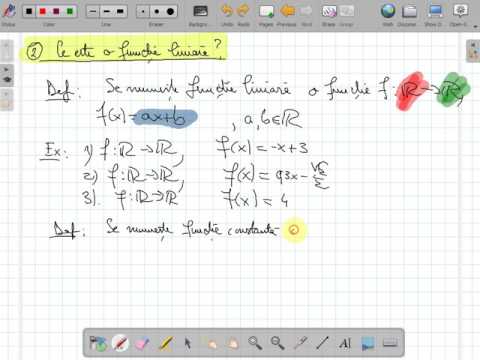 Pen
Marker
Eraser
Backgrou...
Undo
Redo
Pages
Previous
Next
Erase
Web
Documents
Show D...
OpenBoard
② Ce este o funcție liniară?
Def: Se numește funcție liniară o funcție f: ℝ→ℝ,
f(x)=ax+b , a,b∈ℝ
Ex: 1) f: ℝ→ℝ, f(x) = -x+3
2) f: ℝ→ℝ, f(x) = 0,3x - /2
3). f: ℝ→ℝ, f(x) = 4
Def: Se numește funcție constantă o